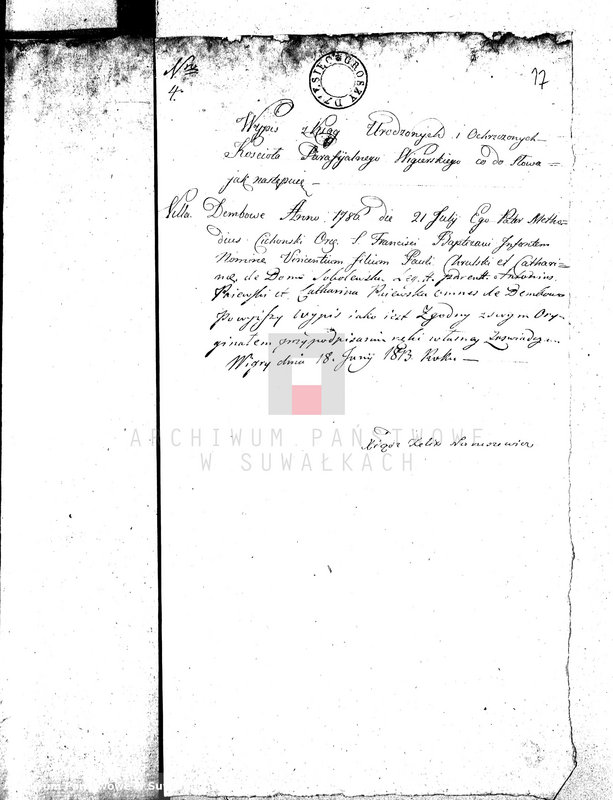 Nro
4.
17
GROSZY DZIESIĘĆ
Wypis z Xiąg Urodzonych i Ochrzczonych
Kościoła Parafijalnego Wigierskiego co do słowa
jak następuie
Villa Dembowe Anno 1786 die 21 Julij Ego Pater Metho-
dius Cichonski Ord. S. Francisci Baptizavi Infantem
Nomine Vincentium filium Pauli Chralski et Cathari-
na de Domo Sobolewska Leg. parent. Antonius
Raiewski et Catharina Raiewska omnes de Dembowe
Powyższy Wypis iako iest Zgodny z swym Ory-
ginałem przy podpisaniu ręki własney Zaswiadczam
Wigry dnia 18. Junij 1813 Roku
ARCHIWUM PAŃSTWOWE
W SUWAŁKACH
Xiądz Felix